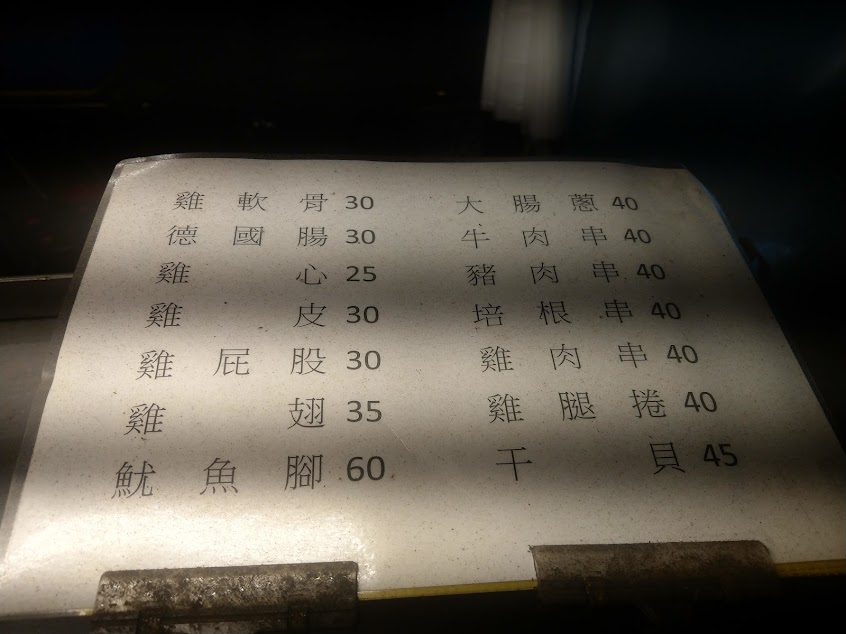 雞軟骨 30 大腸蔥 40
德國腸 30 牛肉串 40
雞心 25 豬肉串 40
雞皮 30 培根串 40
雞屁股 30 雞肉串 40
雞翅 35 雞腿捲 40
魷魚腳 60 干貝 45